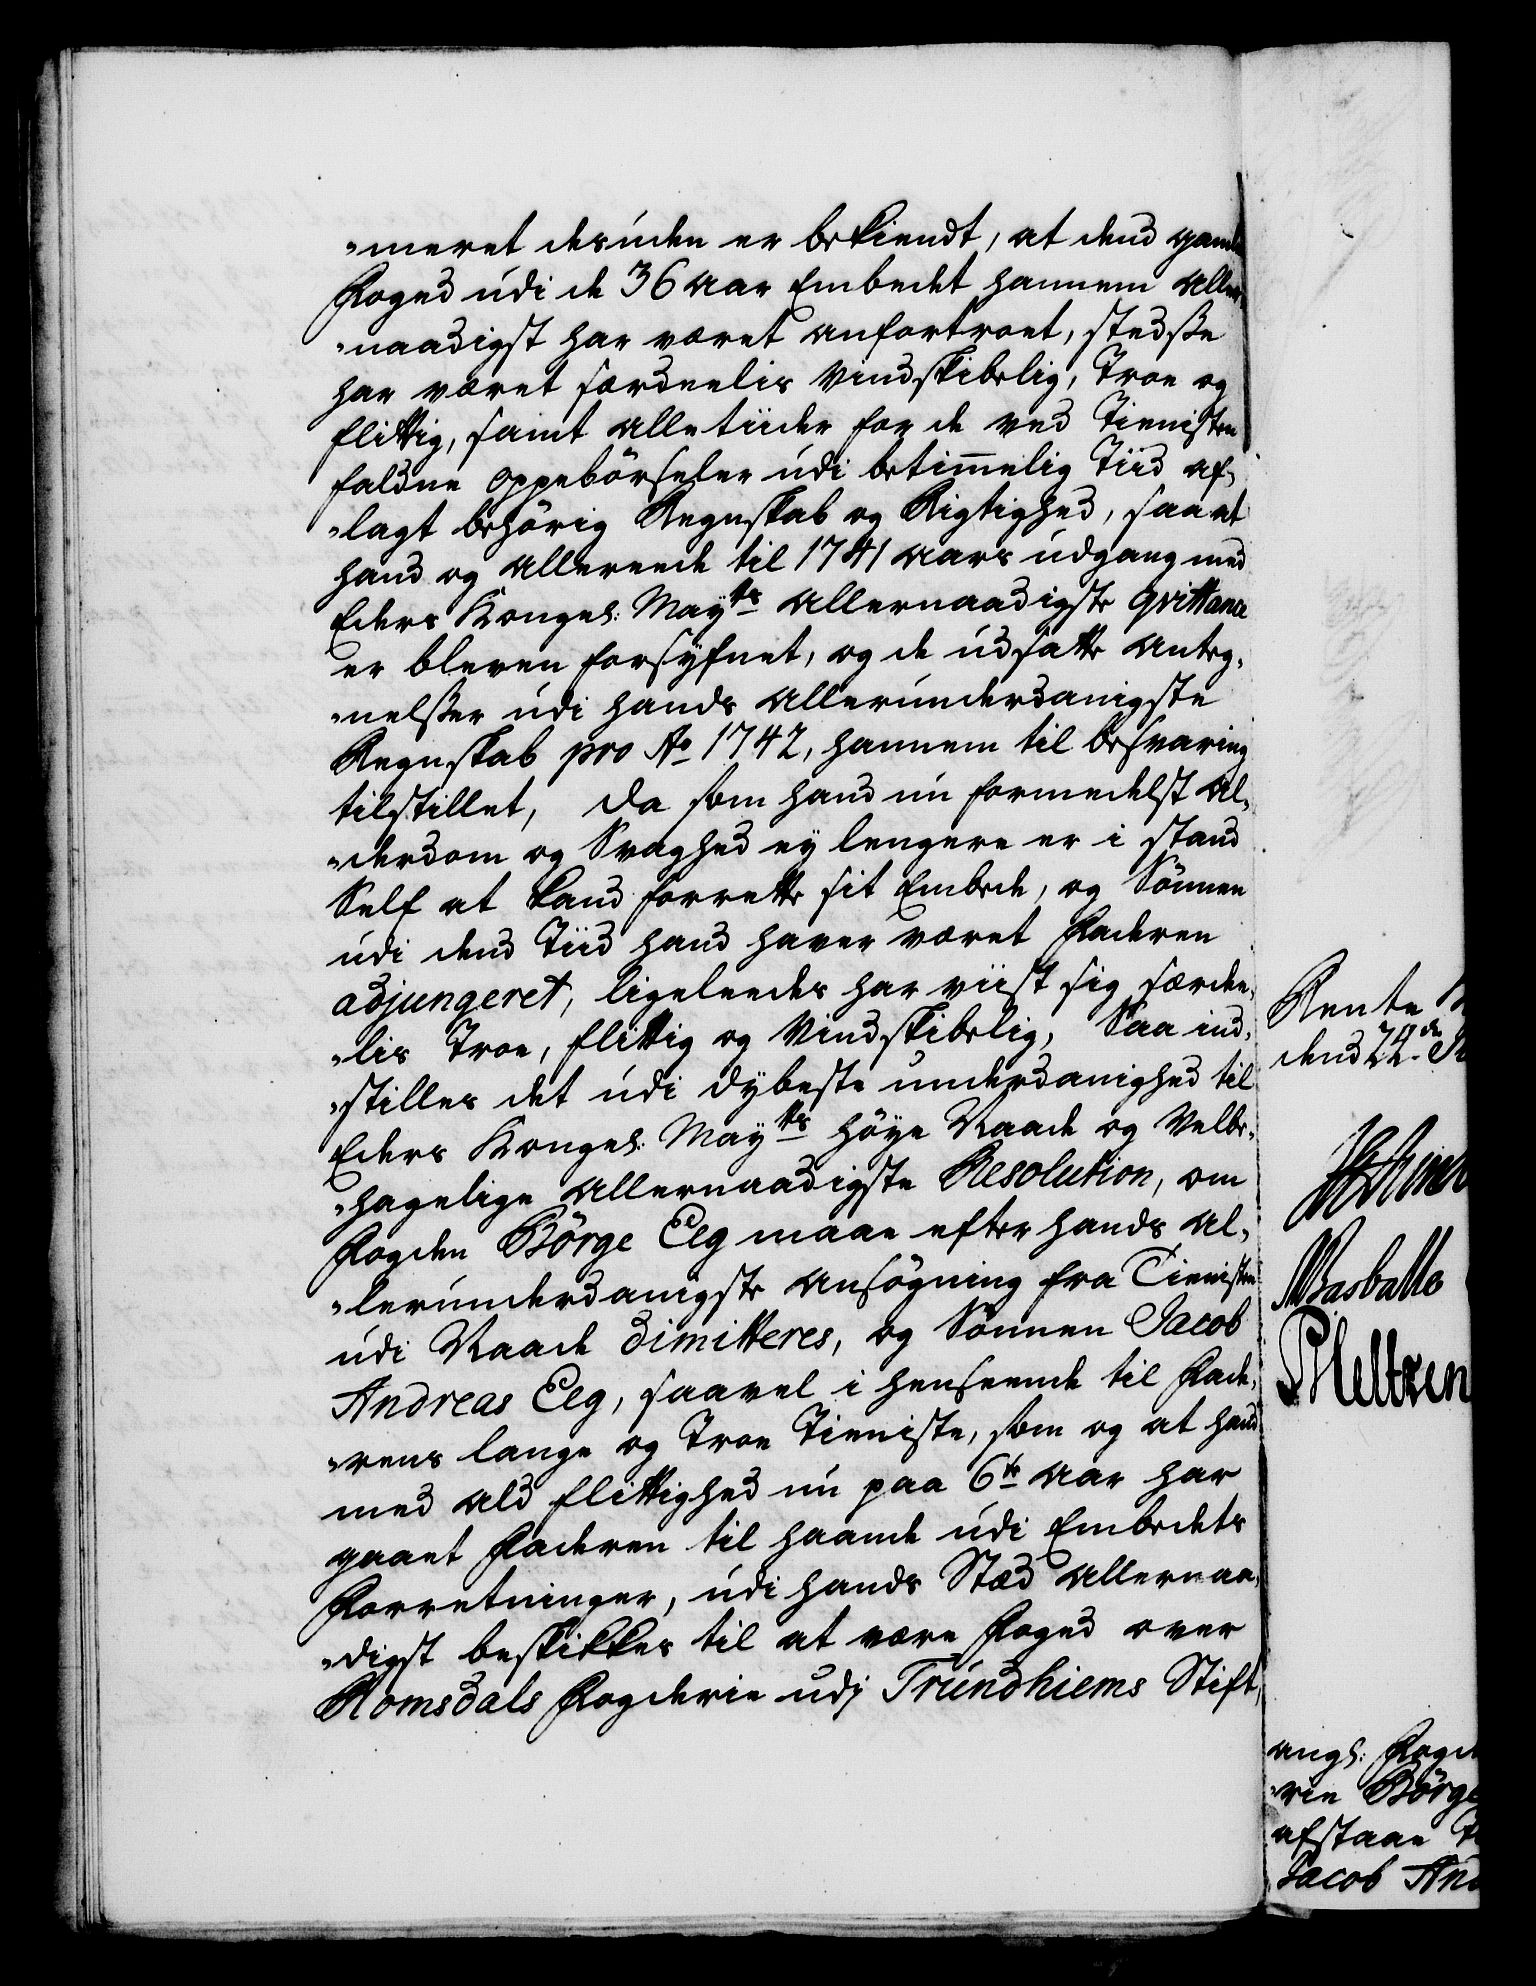 "meret desúden er bekiendt, at dend gamle
Foged údi de 36 Aar Embedet hannem Aller,
"naadigst har været anfortroet, stedsße
har været særdeelis Vindskibelig, Troe og
flittig, samt alletiider for de ved Tienisten
faldne oppebörseler údi betim̅elig Tiid af,
"lagt behörig Regnskab og Rigtighed, saa at
hand og allereede til 1741 Aars údgang med
Eders Kongel: Mayts allernaadigste qvittance
er bleven forsÿfnet, og de údsatte Anteg,
"nelsßer údi hands allerúnderdanigste
Regnskab pro Ao 1742, hannem til besvaring
tilstillet, Da som hand nú formedelst Al,
"derdom og Svaghed ey lengere er i stand
Self at kand forrette sit Embede, og Sönnen
údi dend Tiid hand haver været Faderen
adjungeret, ligeleedes har viist sig særdee,
"lis Troe, flittig og Vindskibelig, Saa ind,
"stilles det údi dÿbeste underdanighed til
Eders Kongel: Mayts höÿe Naade og Velbe,
"hagelige allernaadigste Resolution, om
Fogden Börge Eeg maae efter hands Al,
"lerúnderdanigste ansögning fra Tienisten
údi Naade dimitteres, og Sönnen Jacob
Andreas Eeg, saavel i henseende til Fade,
"rens lange og Troe Tieniste, som og at hand
med ald flittighed nú paa 6te Aar har
gaaet Faderen til haande údi Embedets
Forretninger, údi hands Stæd allernaa,
"digst beskikkes til at være Foged over
Romsdals Fogderie udj Trúndhiems Stift,
Rente
dend 22de
Basballe
angl: Fogde
"rie Börge
afstaae
Jacob And